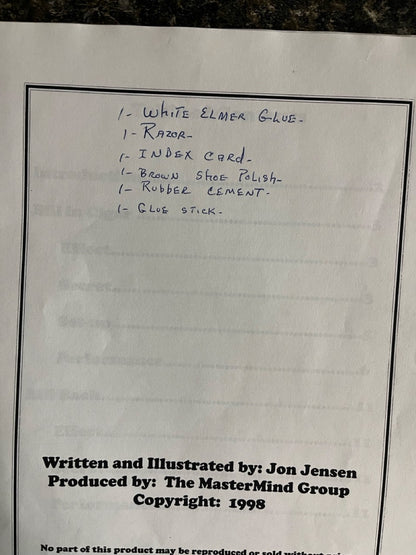 1- WHITE ELMER GLUE-
1- RAZOR-
1- INDEX CARD-
1- BROWN SHOE POLISH-
1- RUBBER CEMENT-
1- GLUE STICK-
Effect
3
Secret
Set-up
Performance
6
11
Effect
11
Written and Illustrated by: Jon Jensen
Produced by: The MasterMind Group
Copyright: 1998
No part of this product may be reproduced or sold without